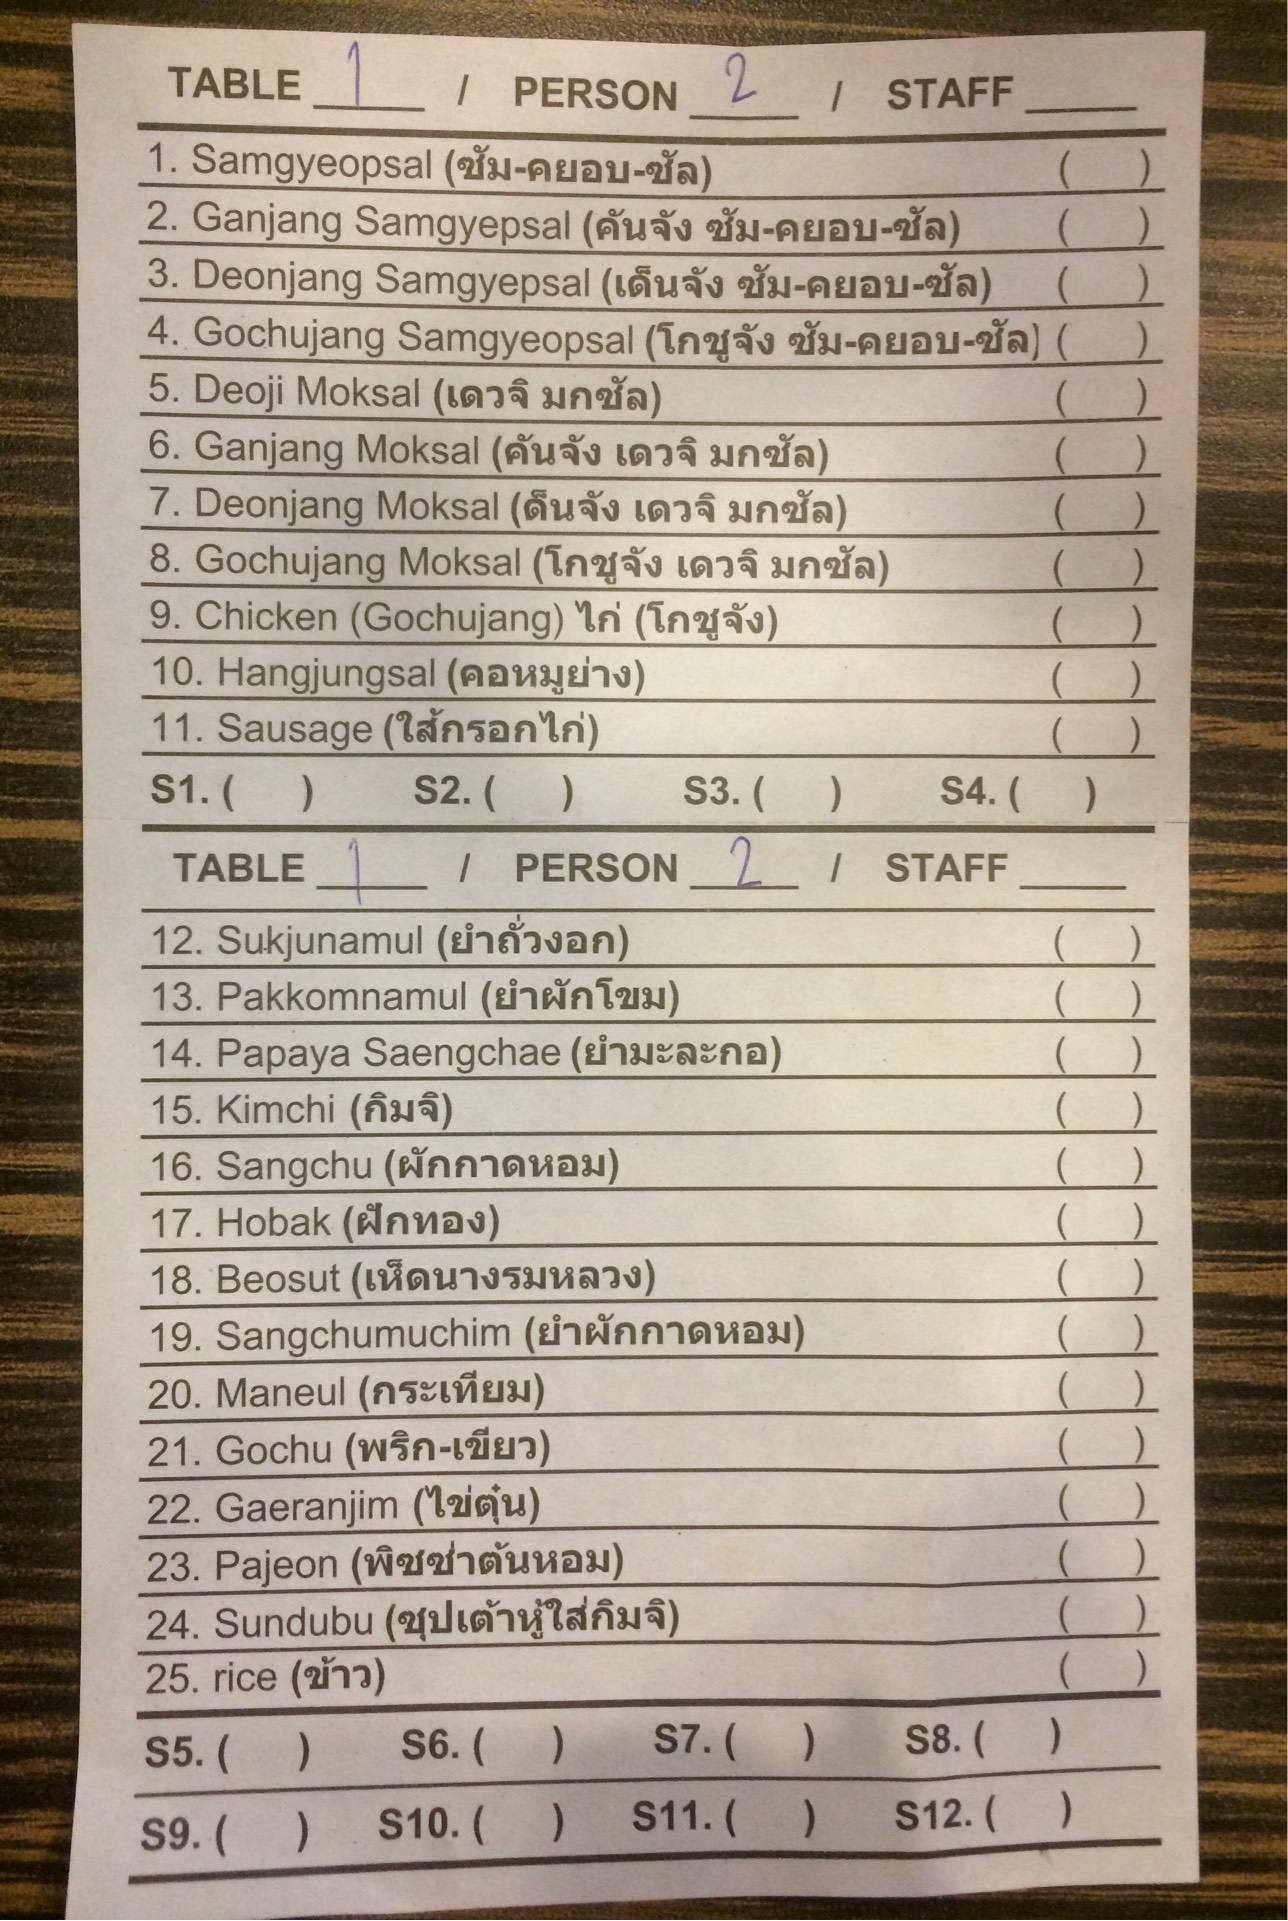 TABLE 1 / PERSON 2 / STAFF ____
1. Samgyeopsal (ซัม-คยอบ-ซัล) ( )
2. Ganjang Samgyepsal (คันจัง ซัม-คยอบ-ซัล) ( )
3. Deonjang Samgyepsal (เด็นจัง ซัม-คยอบ-ซัล) ( )
4. Gochujang Samgyeopsal (โกชูจัง ซัม-คยอบ-ซัล) ( )
5. Deoji Moksal (เดวจิ มกซัล) ( )
6. Ganjang Moksal (คันจัง เดวจิ มกซัล) ( )
7. Deonjang Moksal (ด็นจัง เดวจิ มกซัล) ( )
8. Gochujang Moksal (โกชูจัง เดวจิ มกซัล) ( )
9. Chicken (Gochujang) ไก่ (โกชูจัง) ( )
10. Hangjungsal (คอหมูย่าง) ( )
11. Sausage (ใส้กรอกไก่) ( )
S1. ( ) S2. ( ) S3. ( ) S4. ( )
TABLE 1 / PERSON 2 / STAFF ____
12. Sukjunamul (ยำถั่วงอก) ( )
13. Pakkomnamul (ยำผักโขม) ( )
14. Papaya Saengchae (ยำมะละกอ) ( )
15. Kimchi (กิมจิ) ( )
16. Sangchu (ผักกาดหอม) ( )
17. Hobak (ฝักทอง) ( )
18. Beosut (เห็ดนางรมหลวง) ( )
19. Sangchumuchim (ยำผักกาดหอม) ( )
20. Maneul (กระเทียม) ( )
21. Gochu (พริก-เขียว) ( )
22. Gaeranjim (ไข่ตุ๋น) ( )
23. Pajeon (พิซซ่าต้นหอม) ( )
24. Sundubu (ซุปเต้าหู้ใส่กิมจิ) ( )
25. rice (ข้าว) ( )
S5. ( ) S6. ( ) S7. ( ) S8. ( )
S9. ( ) S10. ( ) S11. ( ) S12. ( )